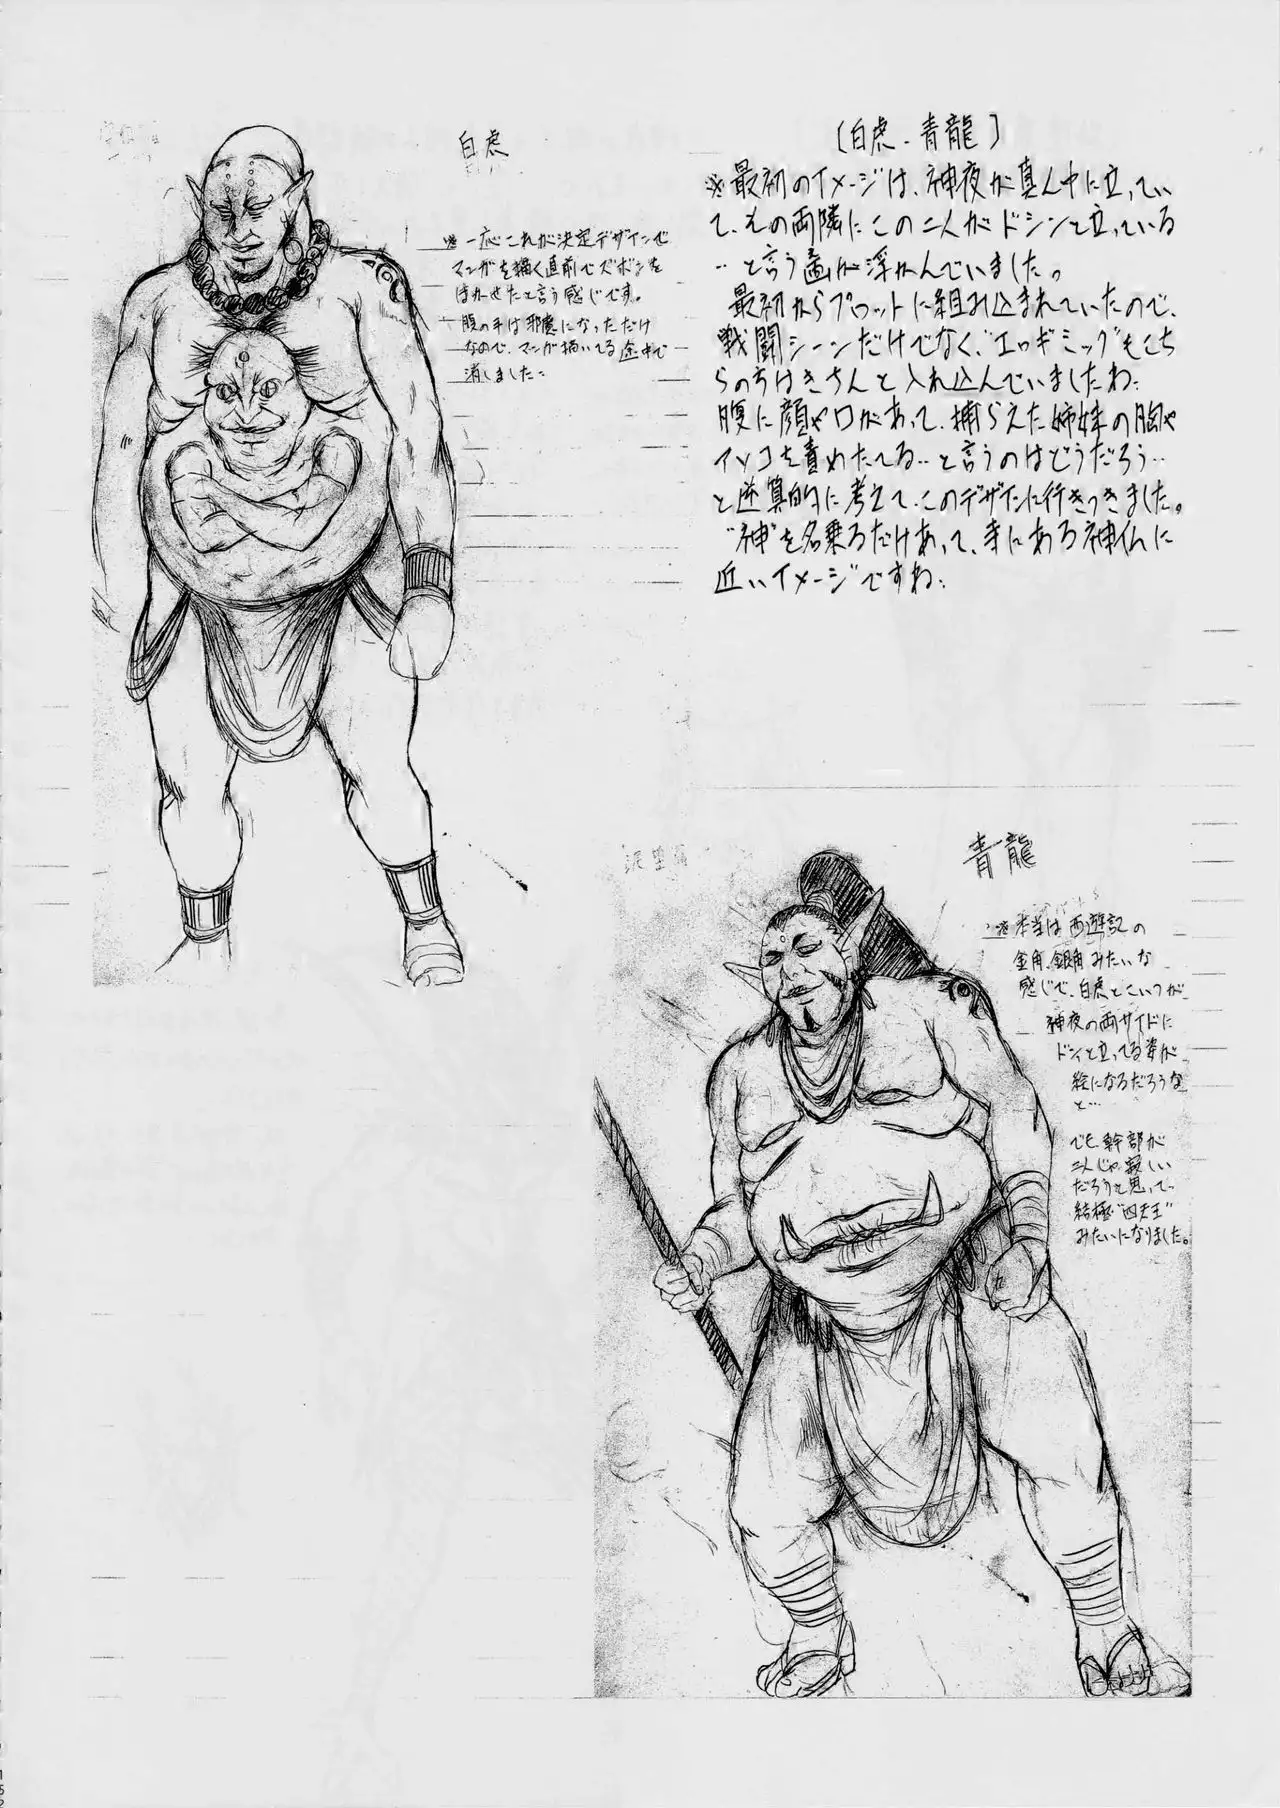 白虎
※一応これが決定デザインで
マンガを描く直前でズボンを
はかせたと言う感じです。
腹の手は邪魔になっただけ
なので、マンガ描いてる途中で
消しました。
[白虎・青龍]
※最初のイメージは、神夜が真ん中に立ってい
て、その両隣にこの二人がドシンと立っている
…と言う画が浮かんでいました。
最初からプロットに組み込まれていたので、
戦闘シーンだけでなく、"エロギミック"もこち
らの方はきちんと入れ込んでいましたね。
腹に顔や口があって、捕らえた姉妹の胸や
アソコを責めたてる…と言うのはどうだろう…
と逆算的に考えて、このデザインに行きつきました。
"神"を名乗るだけあって、寺にある神仏に
近いイメージですね。
青龍
※本当は西遊記の
金角、銀角みたいな
感じで、白虎とこいつが
神夜の両サイドに
ドンと立ってる姿が
絵になるだろうな
と…
でも、幹部が
二人じゃ寂しい
だろうと思って、
結極"四天王"
みたいになりました。
152